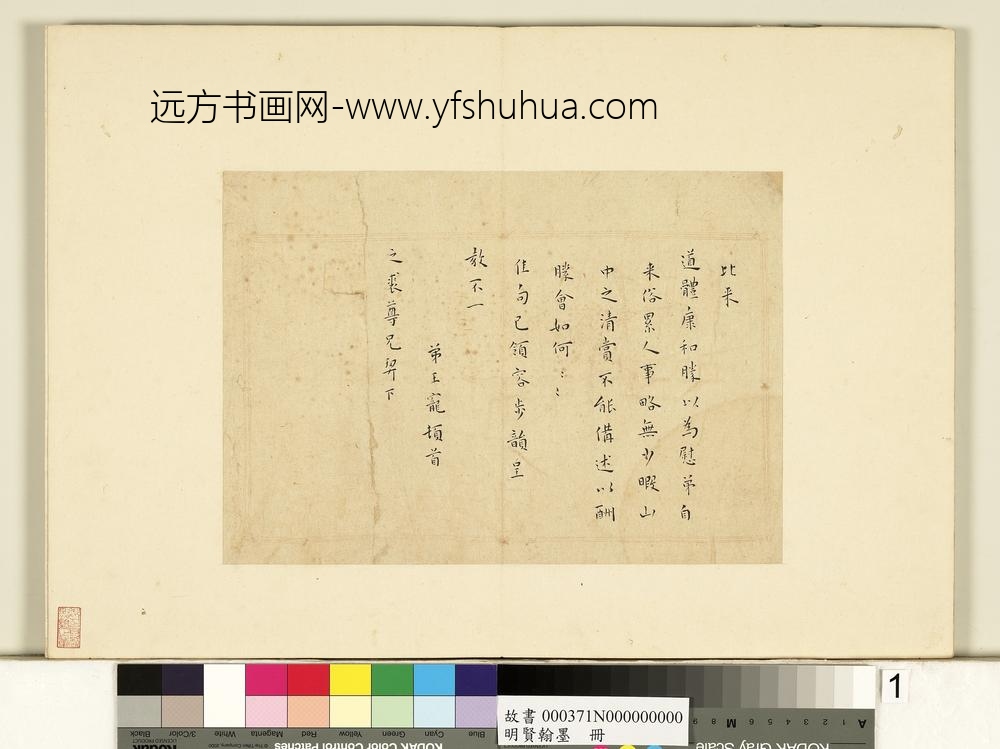 远方书画网-www.yfshuhua.com
比来
道體康和勝以為慰弟自
来俗累人事略無少暇山
中之清賞不能備述以酬
勝會如何〻〻
佳句已領容步韻呈
教不一
弟王寵頓首
之裘尊兄契下
1
故書 000371N000000000
明賢翰墨 冊
Black
3/Color
White
Magenta
Red
Yellow
Green
Cyan
Blue
KODAK Color Control Patches
KODAK Gray Scale
Kodak
LICENSED PRODUCT
A 1 2 3 4 5 6 M 8 9